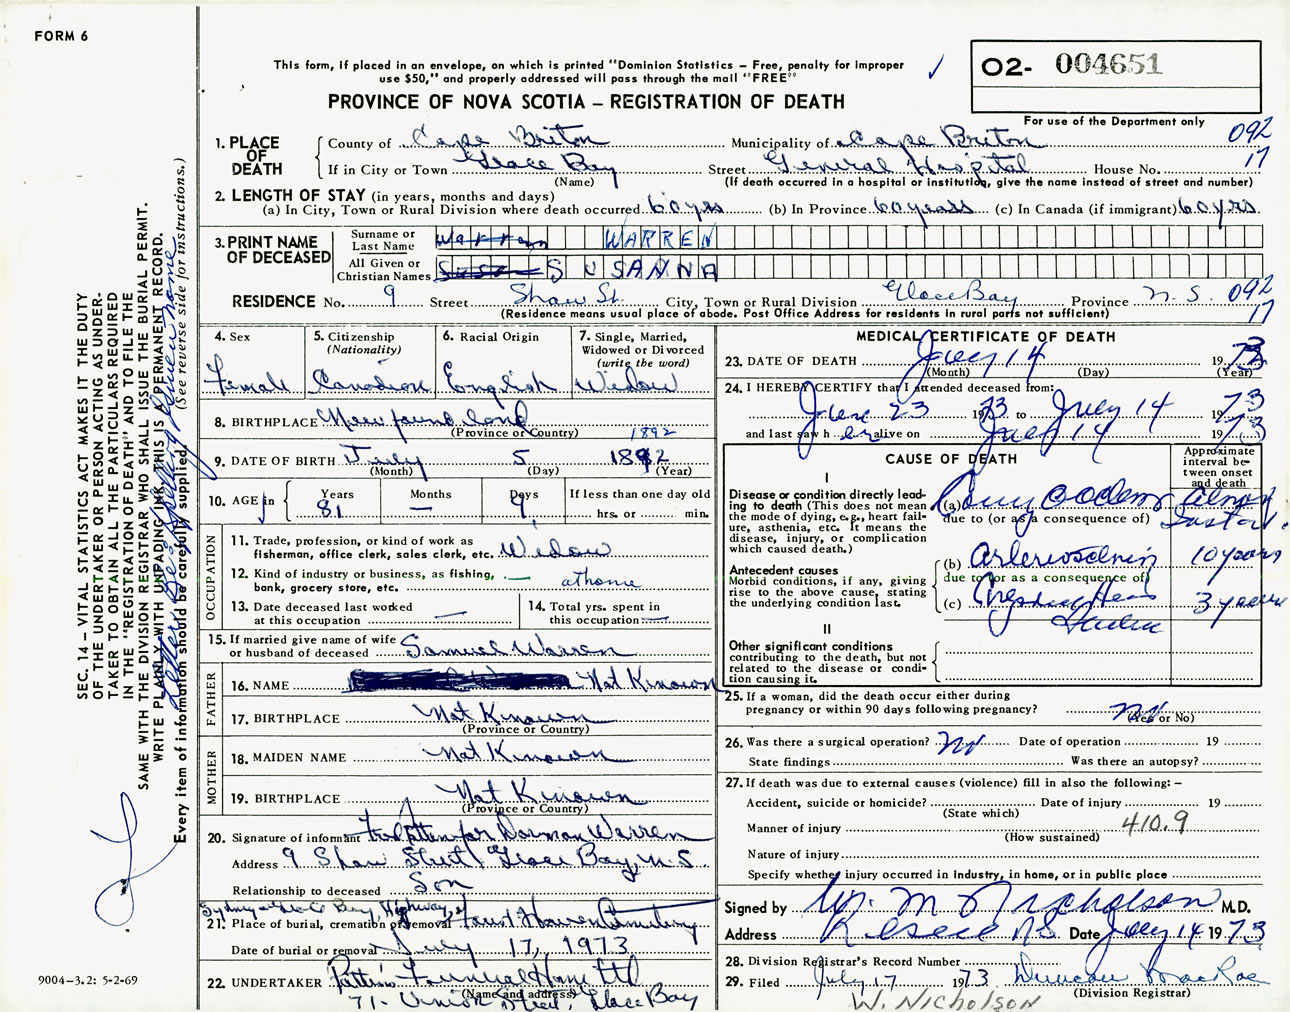 FORM 6
This form, if placed in an envelope, on which is printed "Dominion Statistics – Free, penalty for improper
use $50," and properly addressed will pass through the mail "FREE"
O2- 004651
PROVINCE OF NOVA SCOTIA – REGISTRATION OF DEATH
For use of the Department only
1. PLACE OF DEATH
County of Cape Briton Municipality of Cape Briton 092
If in City or Town Glace Bay Street General Hospital House No. 17
(Name) (If death occurred in a hospital or institution, give the name instead of street and number)
2. LENGTH OF STAY (in years, months and days)
(a) In City, Town or Rural Division where death occurred 60 yrs (b) In Province 60 years (c) In Canada (if immigrant) 60 yrs
3. PRINT NAME OF DECEASED
Surname or Last Name Warren WARREN
All Given or Christian Names SUSANNA
RESIDENCE No. 9 Street Shaw St. City, Town or Rural Division Glace Bay Province N.S. 092
(Residence means usual place of abode. Post Office Address for residents in rural parts not sufficient) 17
4. Sex
Female
5. Citizenship (Nationality)
Canadian
6. Racial Origin
English
7. Single, Married, Widowed or Divorced (write the word)
Widow
8. BIRTHPLACE Newfoundland
(Province or Country) 1892
9. DATE OF BIRTH July 5 1892
(Month) (Day) (Year)
10. AGE in Years Months Days If less than one day old
81 — 9 hrs. or min.
OCCUPATION
11. Trade, profession, or kind of work as
fisherman, office clerk, sales clerk, etc. Widow
12. Kind of industry or business, as fishing,
bank, grocery store, etc. — at home
13. Date deceased last worked
at this occupation —
14. Total yrs. spent in
this occupation —
15. If married give name of wife
or husband of deceased Samuel Warren
FATHER
16. NAME Not Kinown
17. BIRTHPLACE Not Kinown
(Province or Country)
MOTHER
18. MAIDEN NAME Not Kinown
19. BIRTHPLACE Not Kinown
(Province or Country)
20. Signature of informant for Dorman Warren
Address 9 Shaw Street Glace Bay, N.S.
Relationship to deceased Son
Sydney Glace Bay Highway
21. Place of burial, cremation or removal Forest Haven Cemetery
Date of burial or removal July 17, 1973
22. UNDERTAKER Patten Funeral Home Ltd
(Name and address)
71- Union Street, Glace Bay
MEDICAL CERTIFICATE OF DEATH
23. DATE OF DEATH July 14 1973
(Month) (Day) (Year)
24. I HEREBY CERTIFY that I attended deceased from:
June 23 1973 to July 14 1973
and last saw her alive on July 14 1973
CAUSE OF DEATH
Approximate interval between onset and death
I
Disease or condition directly leading to death (This does not mean the mode of dying, e.g., heart failure, asthenia, etc. It means the disease, injury, or complication which caused death.)
(a)
due to (or as a consequence of)
Antecedent causes
Morbid conditions, if any, giving rise to the above cause, stating the underlying condition last.
(b) 10 years
due to (or as a consequence of)
(c) 3 years
II
Other significant conditions
contributing to the death, but not related to the disease or condition causing it.
25. If a woman, did the death occur either during
pregnancy or within 90 days following pregnancy? No
(Yes or No)
26. Was there a surgical operation? No Date of operation 19
State findings Was there an autopsy?
27. If death was due to external causes (violence) fill in also the following: –
Accident, suicide or homicide? Date of injury 19
(State which)
Manner of injury 410.9
(How sustained)
Nature of injury
Specify whether injury occurred in industry, in home, or in public place
Signed by W. M Nicholson M.D.
Address N.S. Date July 14 1973
28. Division Registrar's Record Number
29. Filed July 17 1973 Duncan MacRae
(Division Registrar)
W. NICHOLSON
SEC. 14 – VITAL STATISTICS ACT MAKES IT THE DUTY
OF THE UNDERTAKER OR PERSON ACTING AS UNDER-
TAKER TO OBTAIN ALL THE PARTICULARS REQUIRED
IN THE "REGISTRATION OF DEATH" AND TO FILE THE
SAME WITH THE DIVISION REGISTRAR WHO SHALL ISSUE THE BURIAL PERMIT.
WRITE PLAINLY WITH UNFADING INK, THIS IS A PERMANENT RECORD.
Every item of information should be carefully supplied. (See reverse side for instructions.)
9004-3.2: 5-2-69